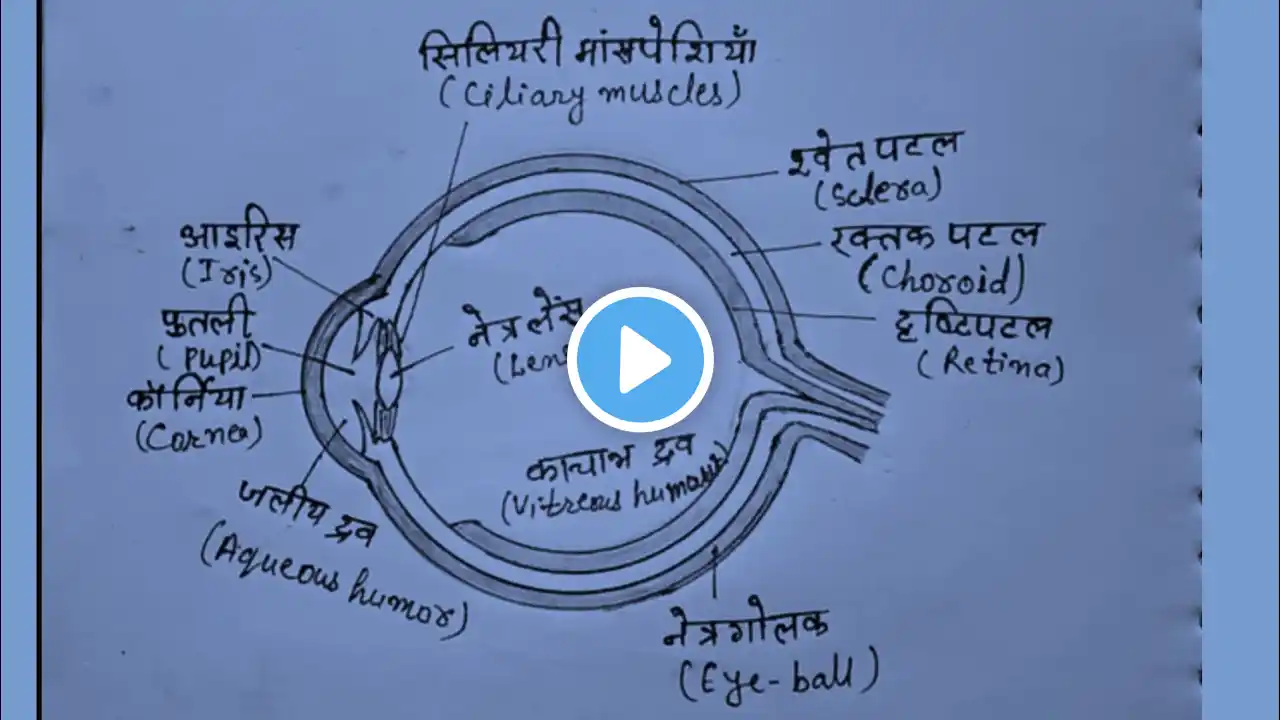 सिलियरी मांसपेशियाँ
(Ciliary muscles)
श्वेत पटल
(Sclera)
आइरिस
(Iris)
रक्तक पटल
(Choroid)
पुतली
(Pupil)
नेत्र लेंस
दृष्टिपटल
(Retina)
कॉर्निया
(Cornea)
काचाभ द्रव
(Vitreous humour)
जलीय द्रव
(Aqueous humor)
नेत्रगोलक
(Eye-ball)